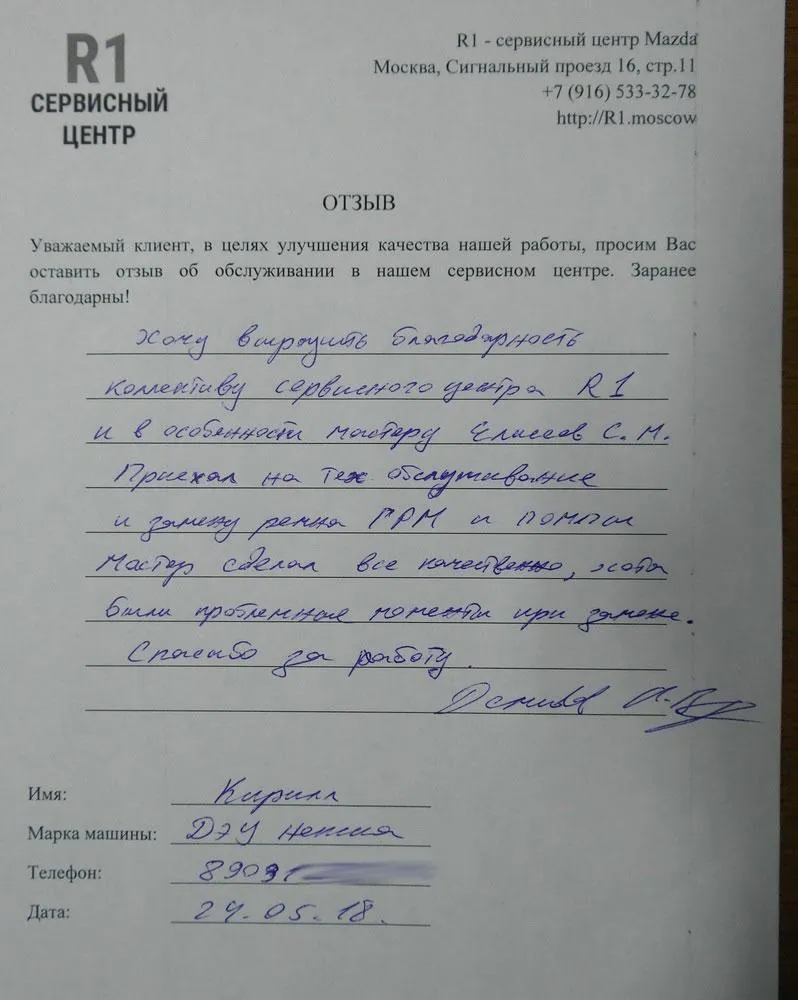 R1
СЕРВИСНЫЙ
ЦЕНТР
R1 - сервисный центр Mazda
Москва, Сигнальный проезд 16, стр.11
+7 (916) 533-32-78
http://R1.moscow
ОТЗЫВ
Уважаемый клиент, в целях улучшения качества нашей работы, просим Вас
оставить отзыв об обслуживании в нашем сервисном центре. Заранее
благодарны!
Хочу выразить благодарность
коллективу сервисного центра R1
и в особенности мастеру Елисеев С.М.
Приехал на тех. обслуживание
и замену ремня ГРМ и помпы
Мастер сделал все качественно, хотя
были проблемные моменты при замене.
Спасибо за работу.
Имя: Кирилл
Марка машины: ДЭУ Нексия
Телефон: 89031
Дата: 24.05.18.